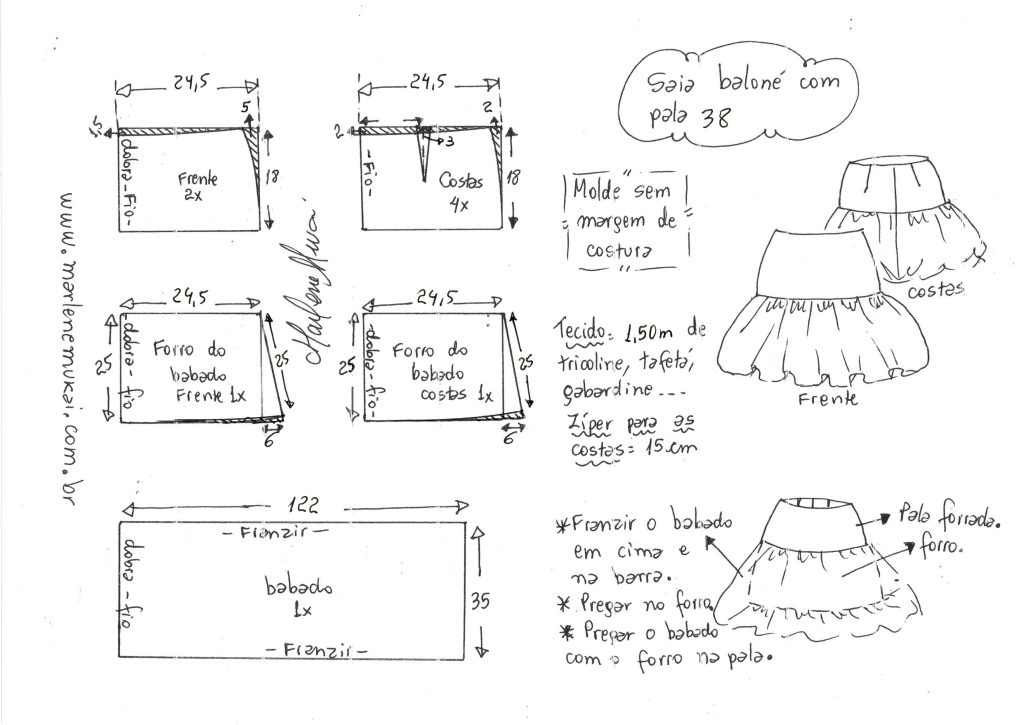 Saia baloné com
pala 38
24,5
5
5
dobra-Fio-
Frente
2x
18
24,5
2
2
3
-Fio-
Costas
4x
18
Molde sem
margem de
costura
costas
Frente
www.marlenemukai.com.br
Marlene Mukai
24,5
25
-dobra-fio-
Forro do
babado
Frente 1x
25
6
24,5
25
-dobra-fio-
Forro do
babado
costas 1x
25
6
Tecido: 1,50m de
tricoline, tafetá,
gabardine....
Zíper para as
costas= 15cm
122
-Franzir-
dobra-fio
babado
1x
35
-Franzir-
*Franzir o babado
em cima e
na barra.
* Pregar no forro.
* Pregar o babado
com o forro na pala.
Pala forrada.
forro.